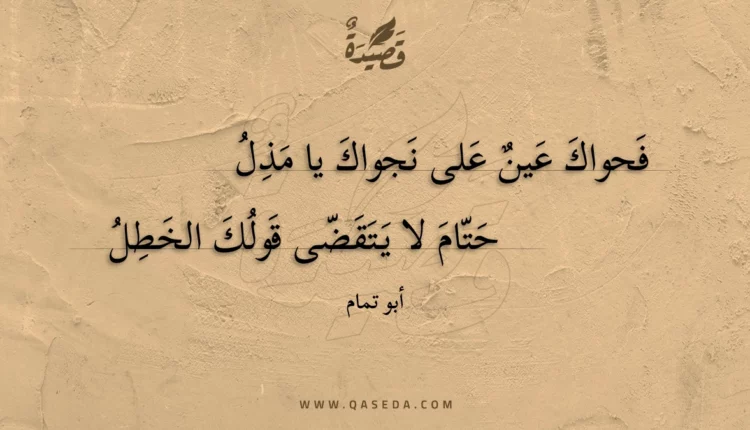 قَصِيدَةٌ
فَحواكَ عَينٌ عَلى نَجواكَ يا مَذِلُ
حَتّامَ لا يَتَقَضّى قَولُكَ الخَطِلُ
أبو تمام
WWW.QASEDA.COM